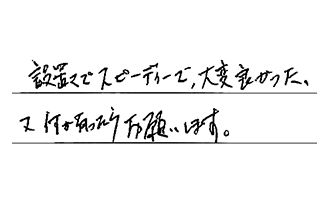 設置までスピーディーで、大変良かった。
又何かあったらお願いします。